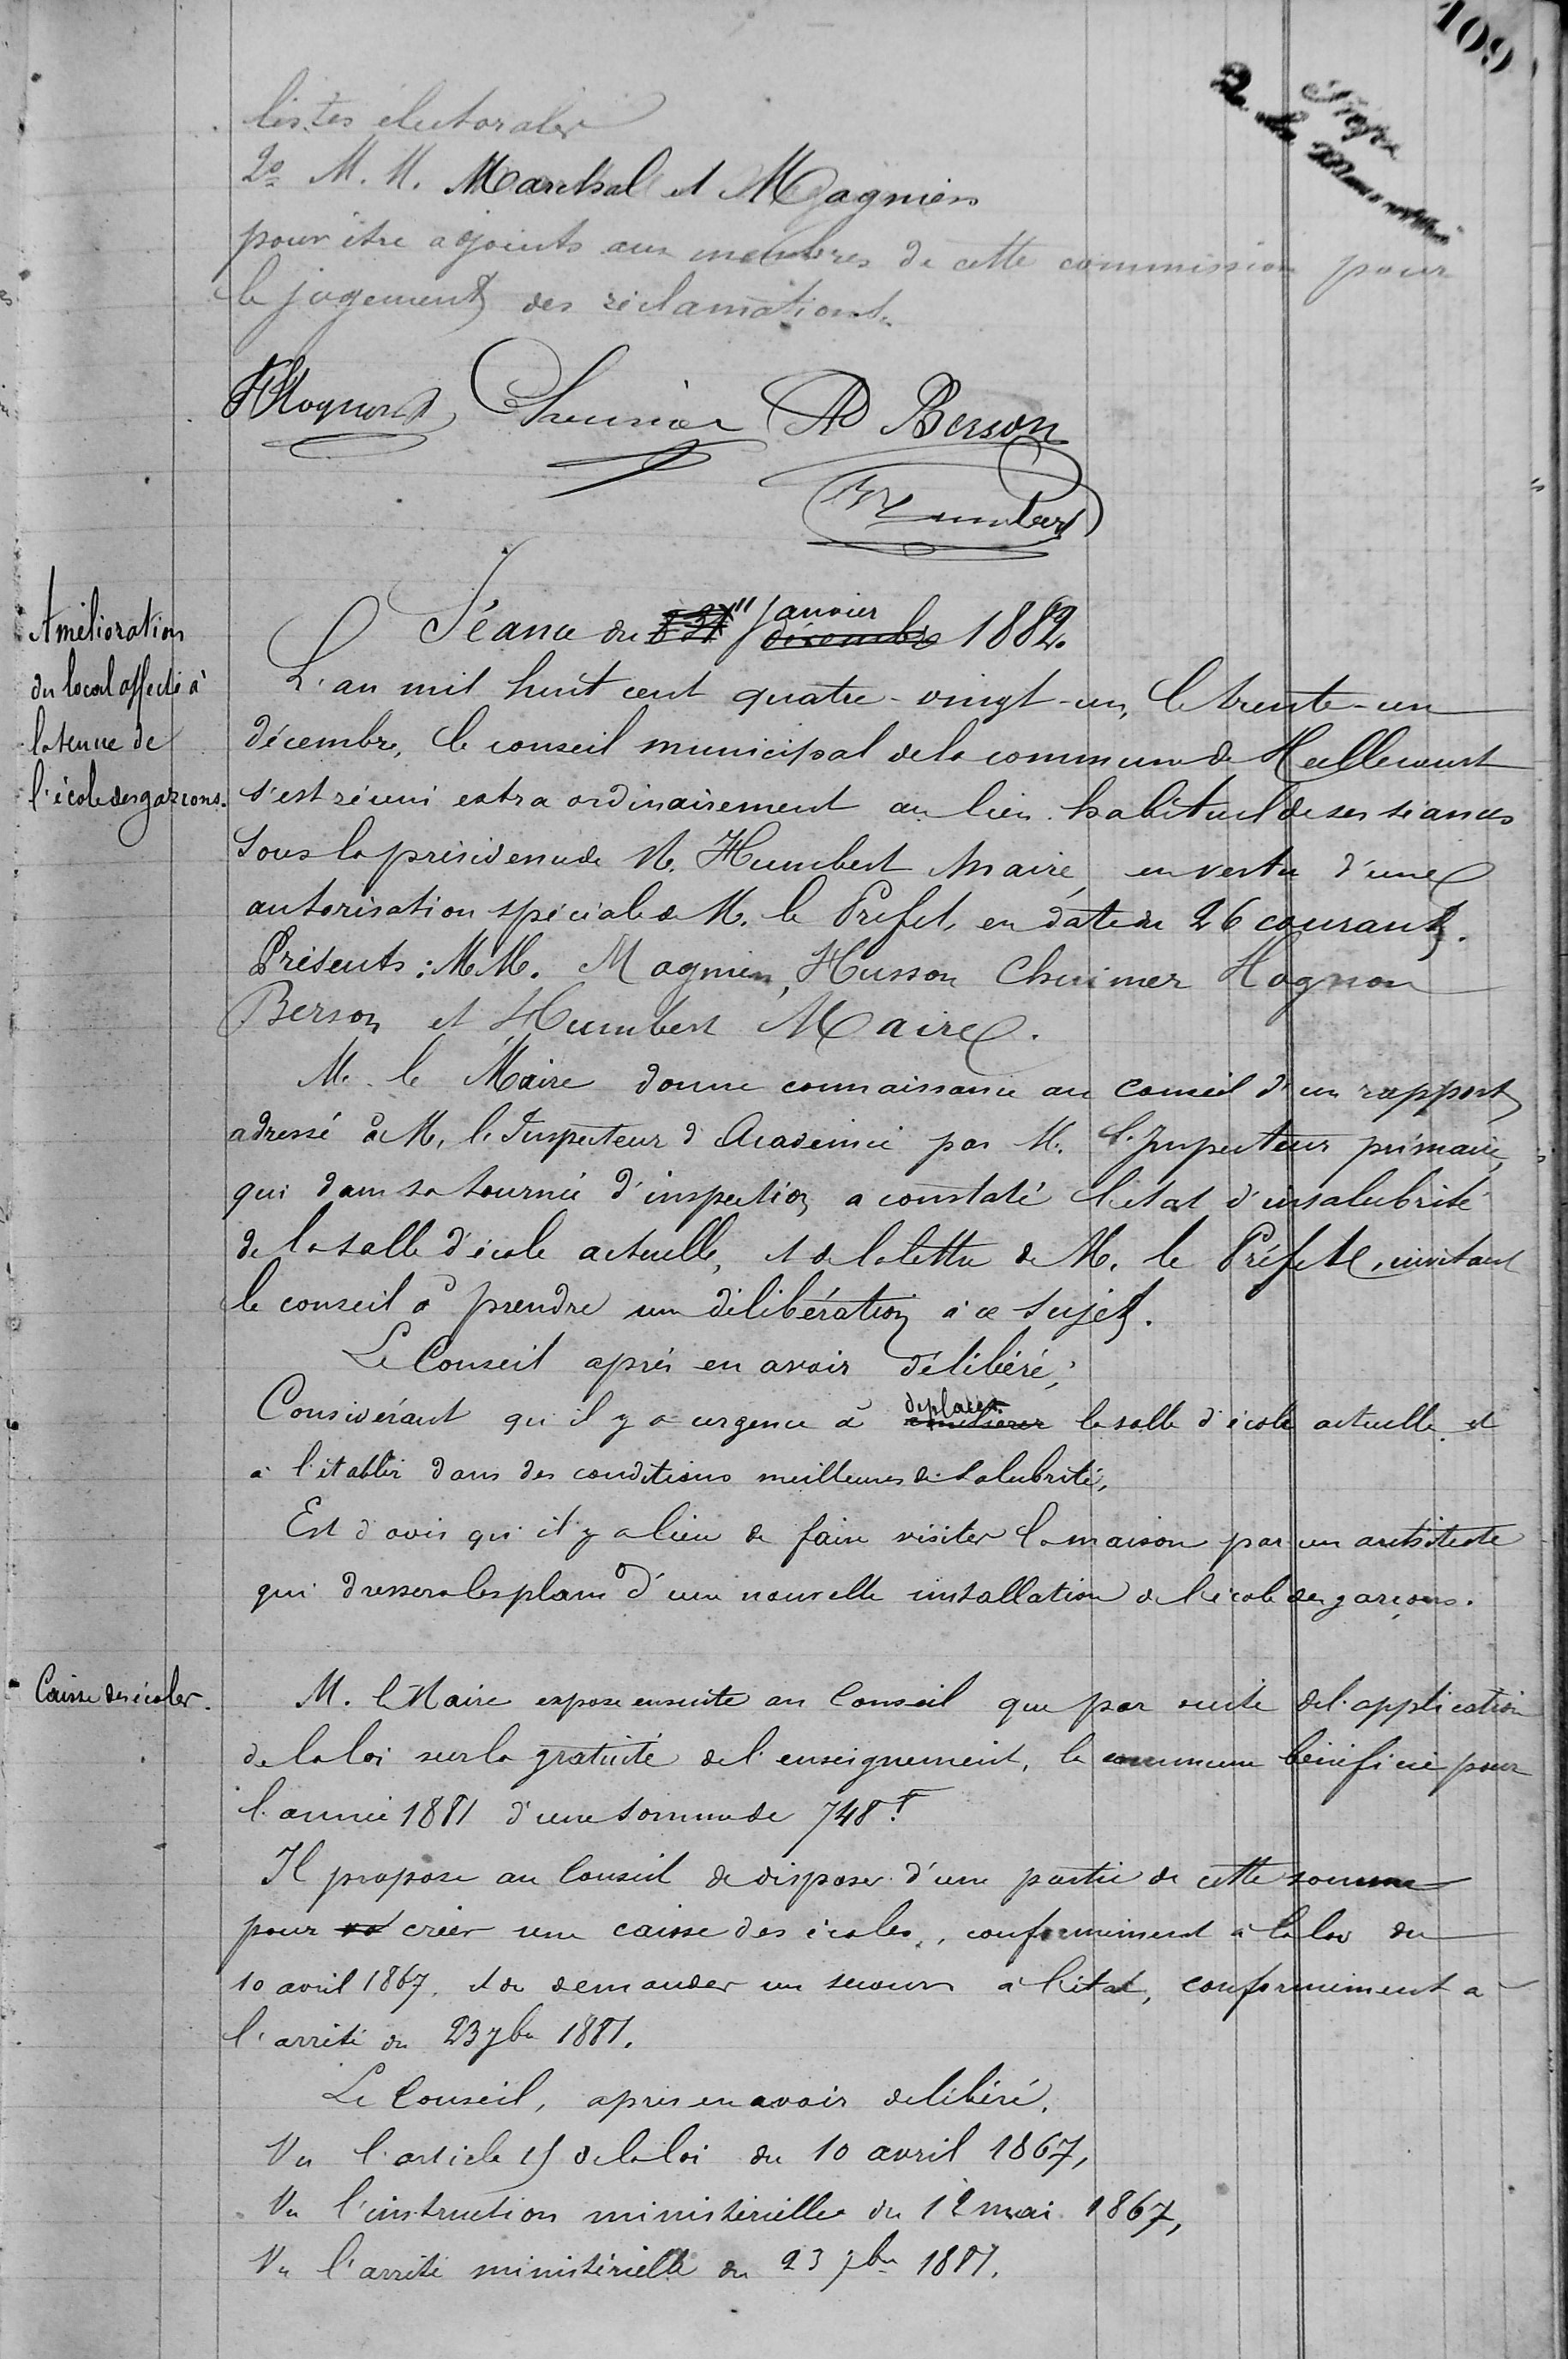 109
listes électorales
2º M. M. Marchal et Magnien
pour être adjoints aux membres de cette commission pour
le jugement des réclamations.
Hognon Cheunier AD Berson
Humbert
Séance du janvier décembre 1882.
Amélioration
du local affecté à
la tenue de
l'école des garçons.
L'an mil huit cent quatre-vingt-un, le trente-un
décembre, le conseil municipal de la commune de Haillecourt
s'est réuni extraordinairement au lieu habituel de ses séances
sous la présidence de M. Humbert Maire, en vertu d'une
autorisation spéciale de M. le Préfet, en date du 26 courant.
Présents : MM. Magnien, Husson Hognon
Berson et Humbert Maire.
M. le Maire donne connaissance au Conseil d'un rapport
adressé à M. l'Inspecteur d'Académie par M. l'Inspecteur primaire,
qui dans sa tournée d'inspection a constaté l'état d'insalubrité
de la salle d'école actuelle, et de la lettre de M. le Préfet, invitant
le conseil à prendre une délibération à ce sujet.
Le Conseil après en avoir délibéré,
Considérant qu'il y a urgence à déplacer la salle d'école actuelle et
à l'établir dans des conditions meilleures de salubrité,
Est d'avis qu'il y a lieu de faire visiter la maison par un architecte
qui dressera les plans d'une nouvelle installation de l'école des garçons.
Caisse des écoles.
M. le Maire expose ensuite au Conseil que par suite de l'application
de la loi sur la gratuité de l'enseignement, la commune bénéficie pour
l'année 1881 d'une somme de 748 f.
Il propose au Conseil de disposer d'une partie de cette somme
pour créer une caisse des écoles, conformément à la loi du
10 avril 1867, et de demander un secours à l'état, conformément à
l'arrêté du 23 7bre 1881.
Le Conseil, après en avoir délibéré.
Vu l'article 15 de la loi du 10 avril 1867,
Vu l'instruction ministérielle du 12 mai 1867,
Vu l'arrêté ministérielle du 23 7bre 1881.